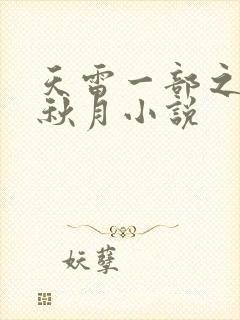 天雷一部之
秋月小說
妖孽